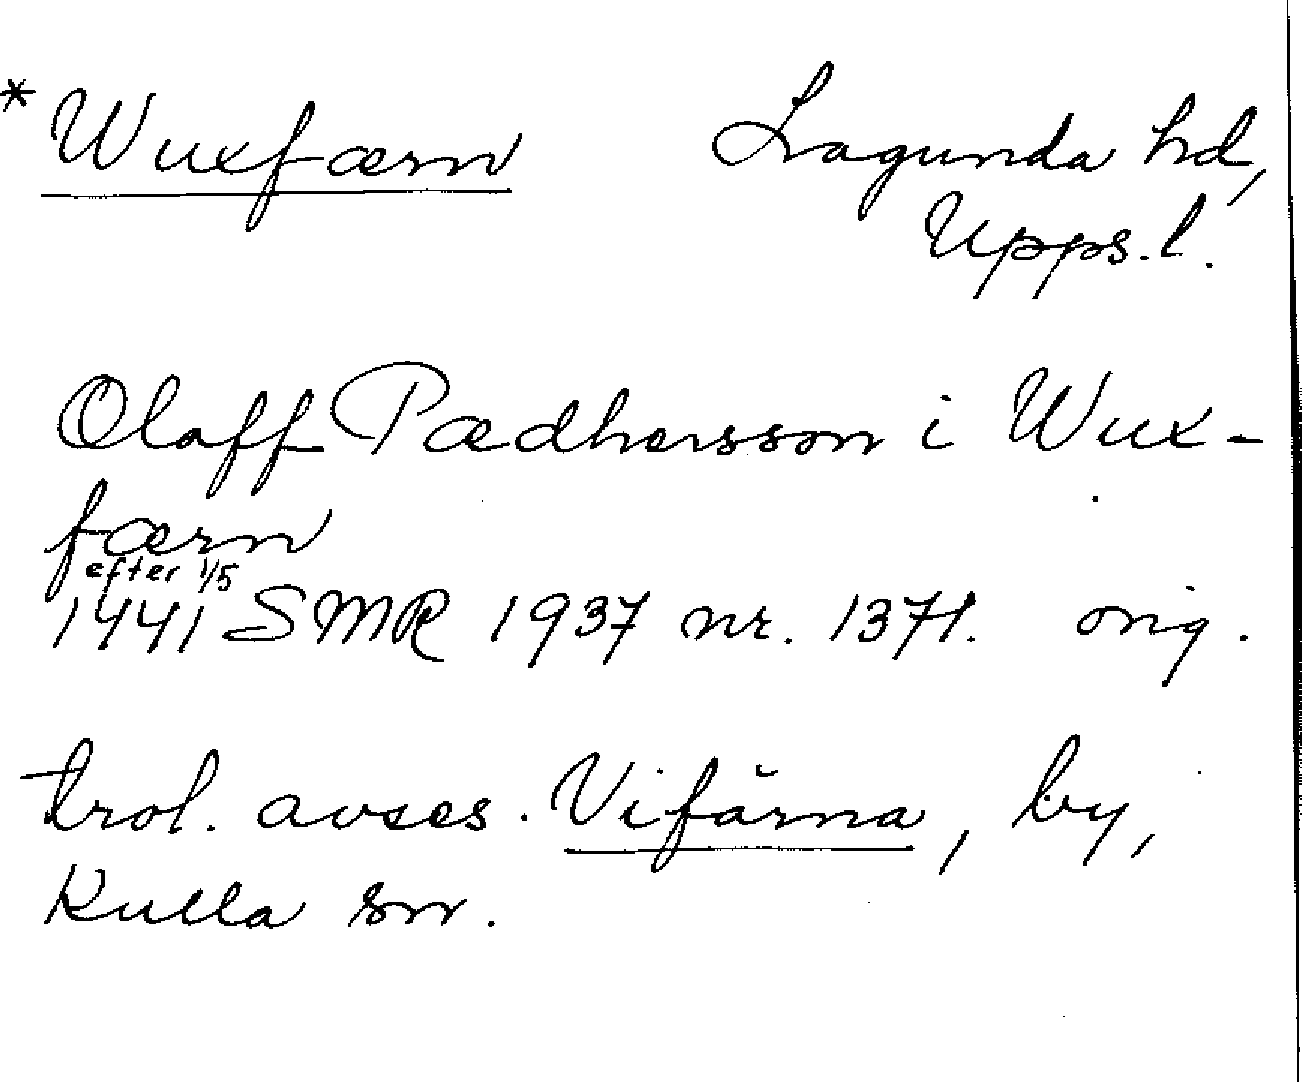 * Wuxfærn
Lagunda hd,
Upps.l.
Olaff Pædhersson i Wux-
færn
efter 1/5
1441 SMR 1937 nr. 1371. orig.
trol. avses. Vifärna, by,
Kulla sn.